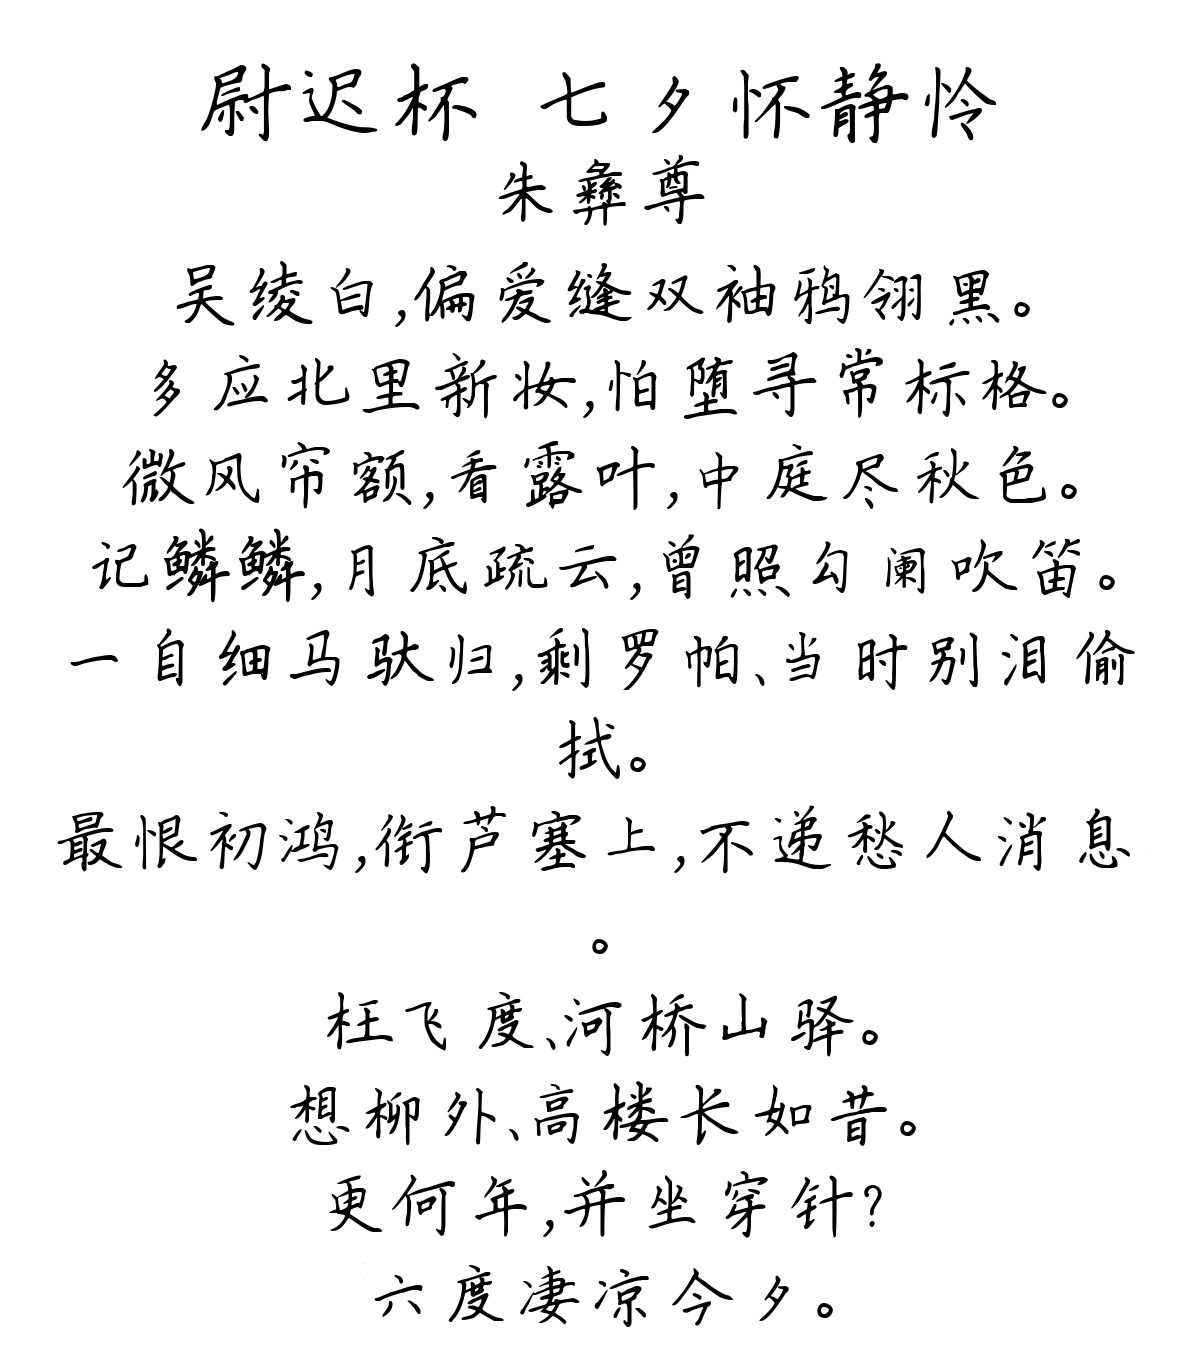 尉迟杯 七夕怀静怜
朱彝尊
吴绫白,偏爱缝双袖鸦翎黑。
多应北里新妆,怕堕寻常标格。
微风帘额,看露叶,中庭尽秋色。
记鳞鳞,月底疏云,曾照勾阑吹笛。
一自细马驮归,剩罗帕、当时别泪偷
拭。
最恨初鸿,衔芦塞上,不递愁人消息
。
枉飞度、河桥山驿。
想柳外、高楼长如昔。
更何年,并坐穿针?
六度凄凉今夕。